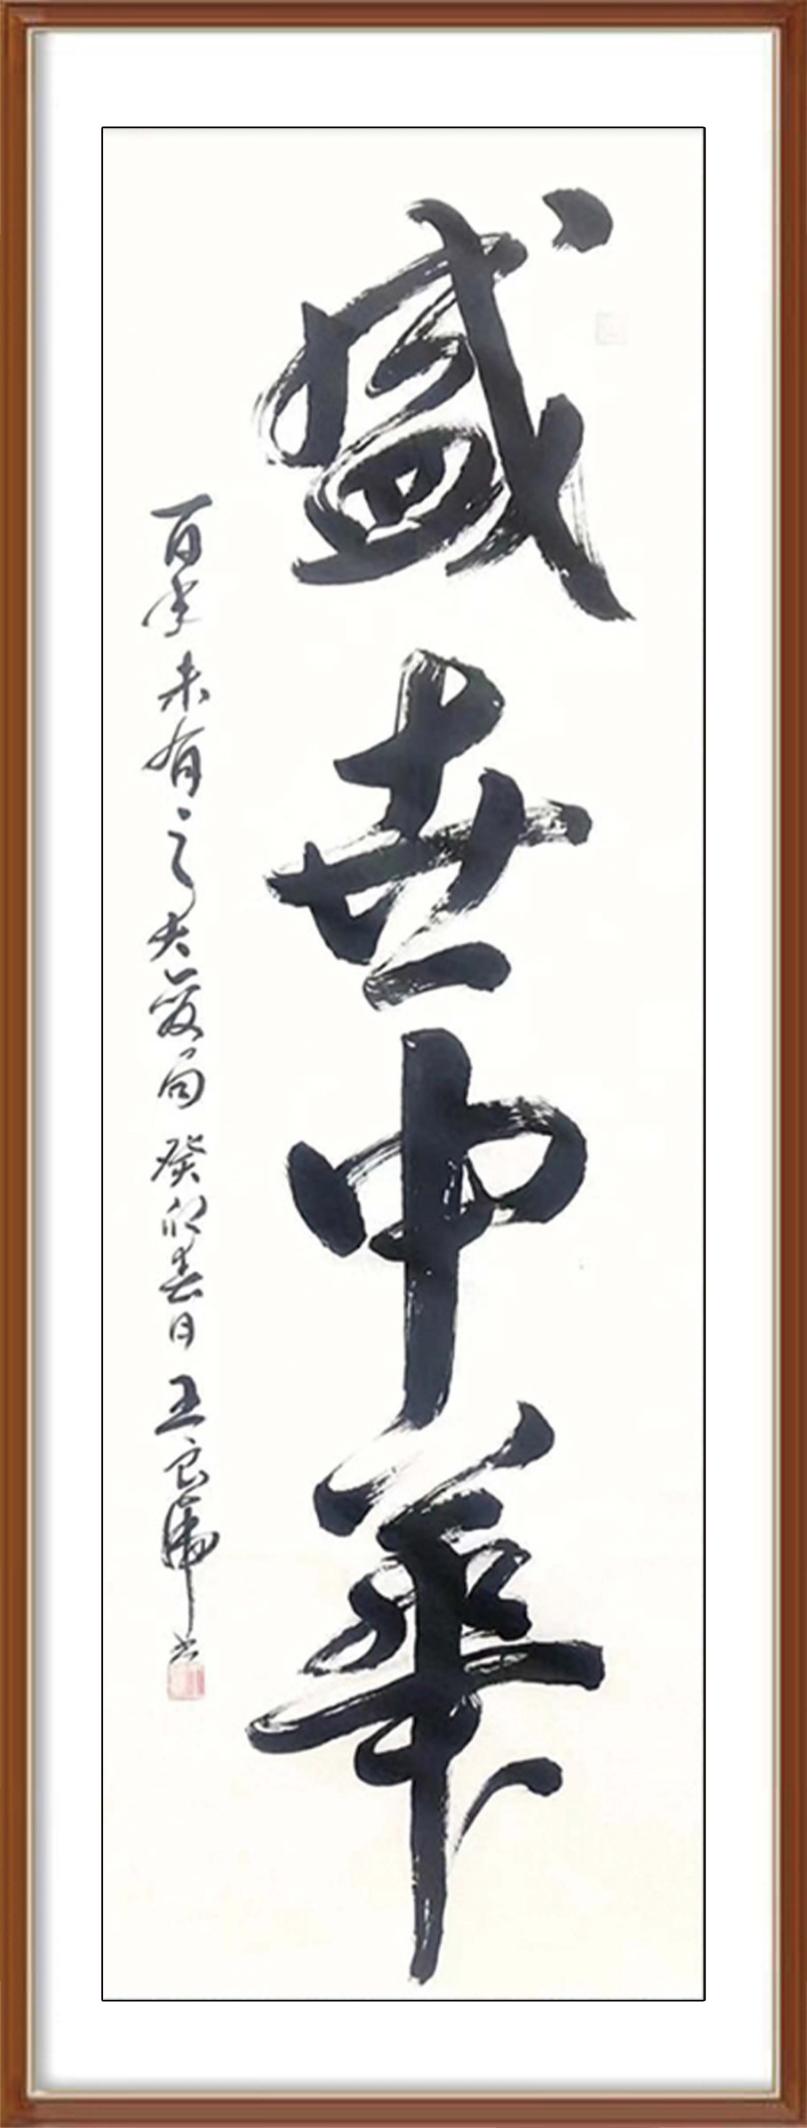 盛世中華
百年未有之大變局 癸卯春日 王良虎书